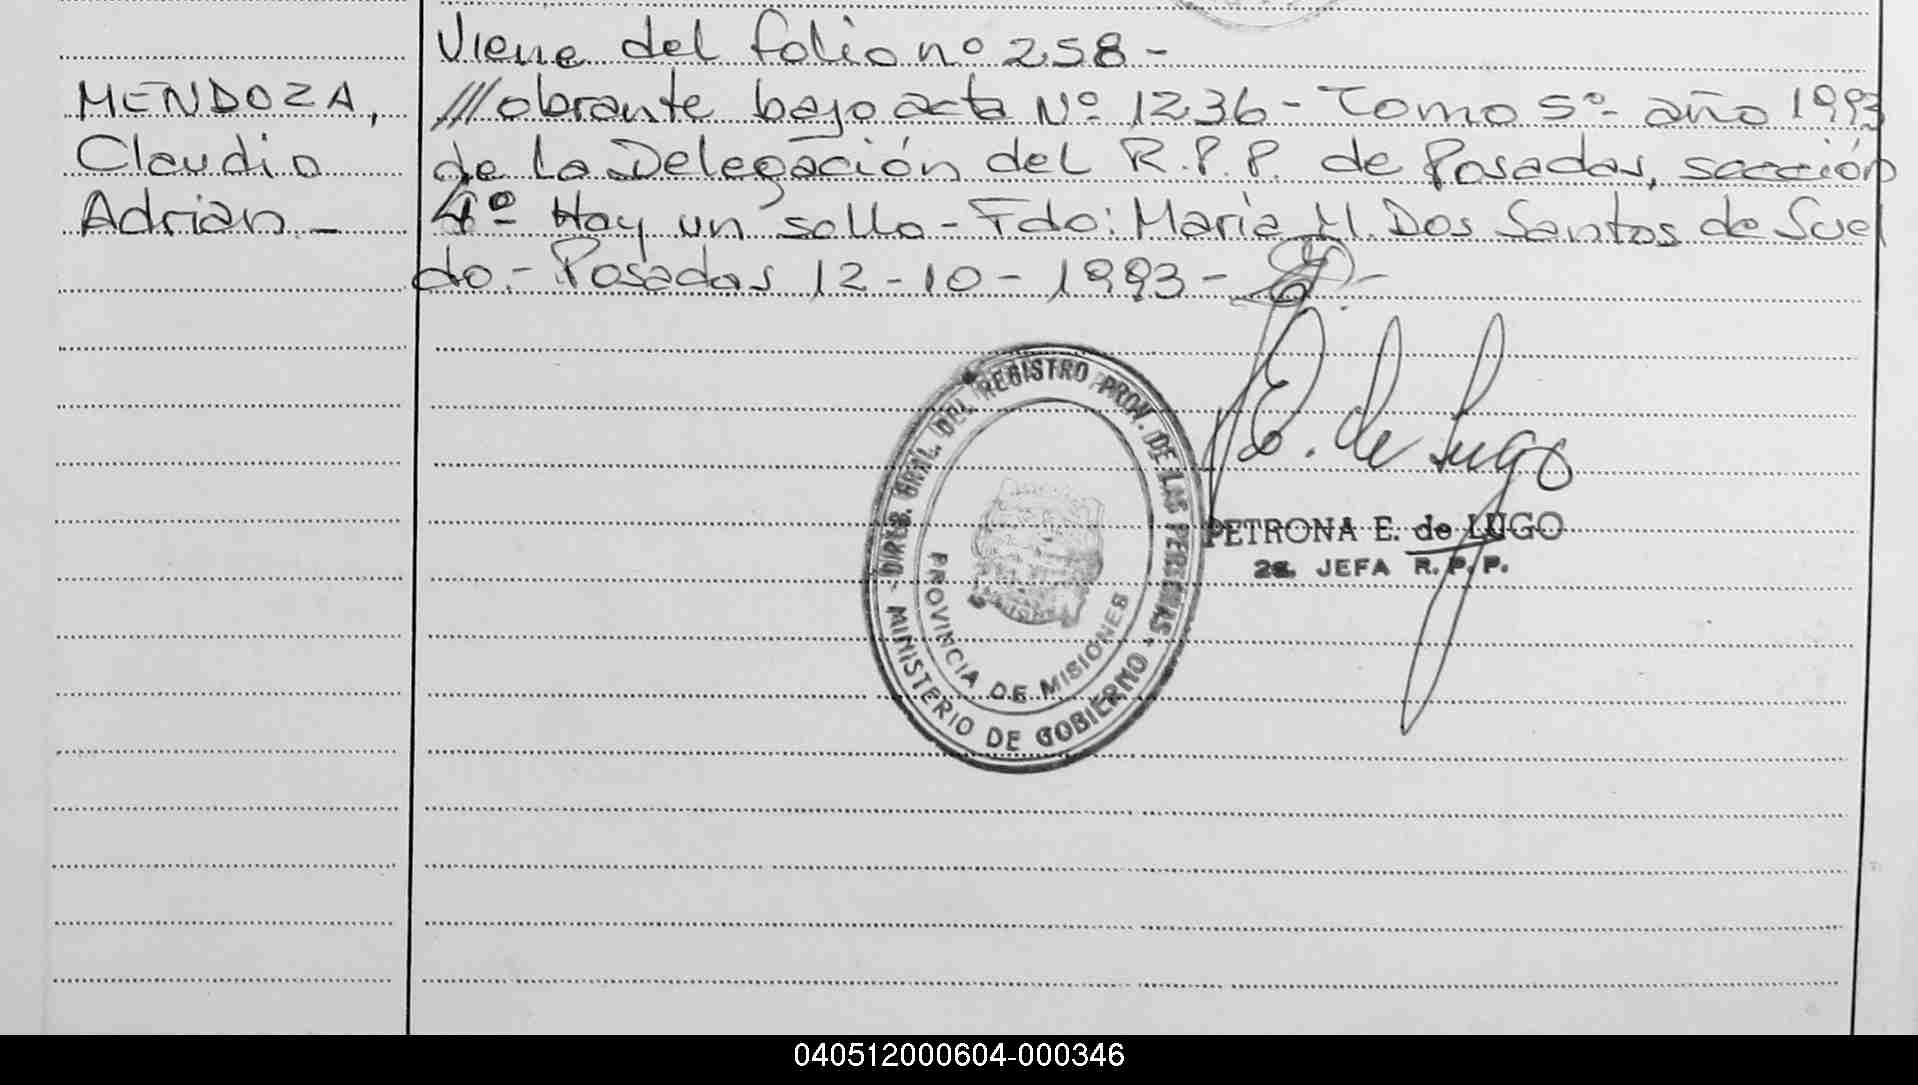 Viene del folio nº 258-
MENDOZA,
Claudio
Adrian.-
///obrante bajo acta Nº 1236- Tomo 5º- año 1993
de la Delegación del R.P.P. de Posadas, sección
4º Hay un sello- Fdo: Maria M. Dos Santos de Suel
do.- Posadas 12-10-1993-
E. de Lugo
PETRONA E. de LUGO
2a. JEFA R.P.P.
DIREC. GRAL. DEL REGISTRO PROV. DE LAS PERSONAS
MINISTERIO DE GOBIERNO
PROVINCIA DE MISIONES
040512000604-000346